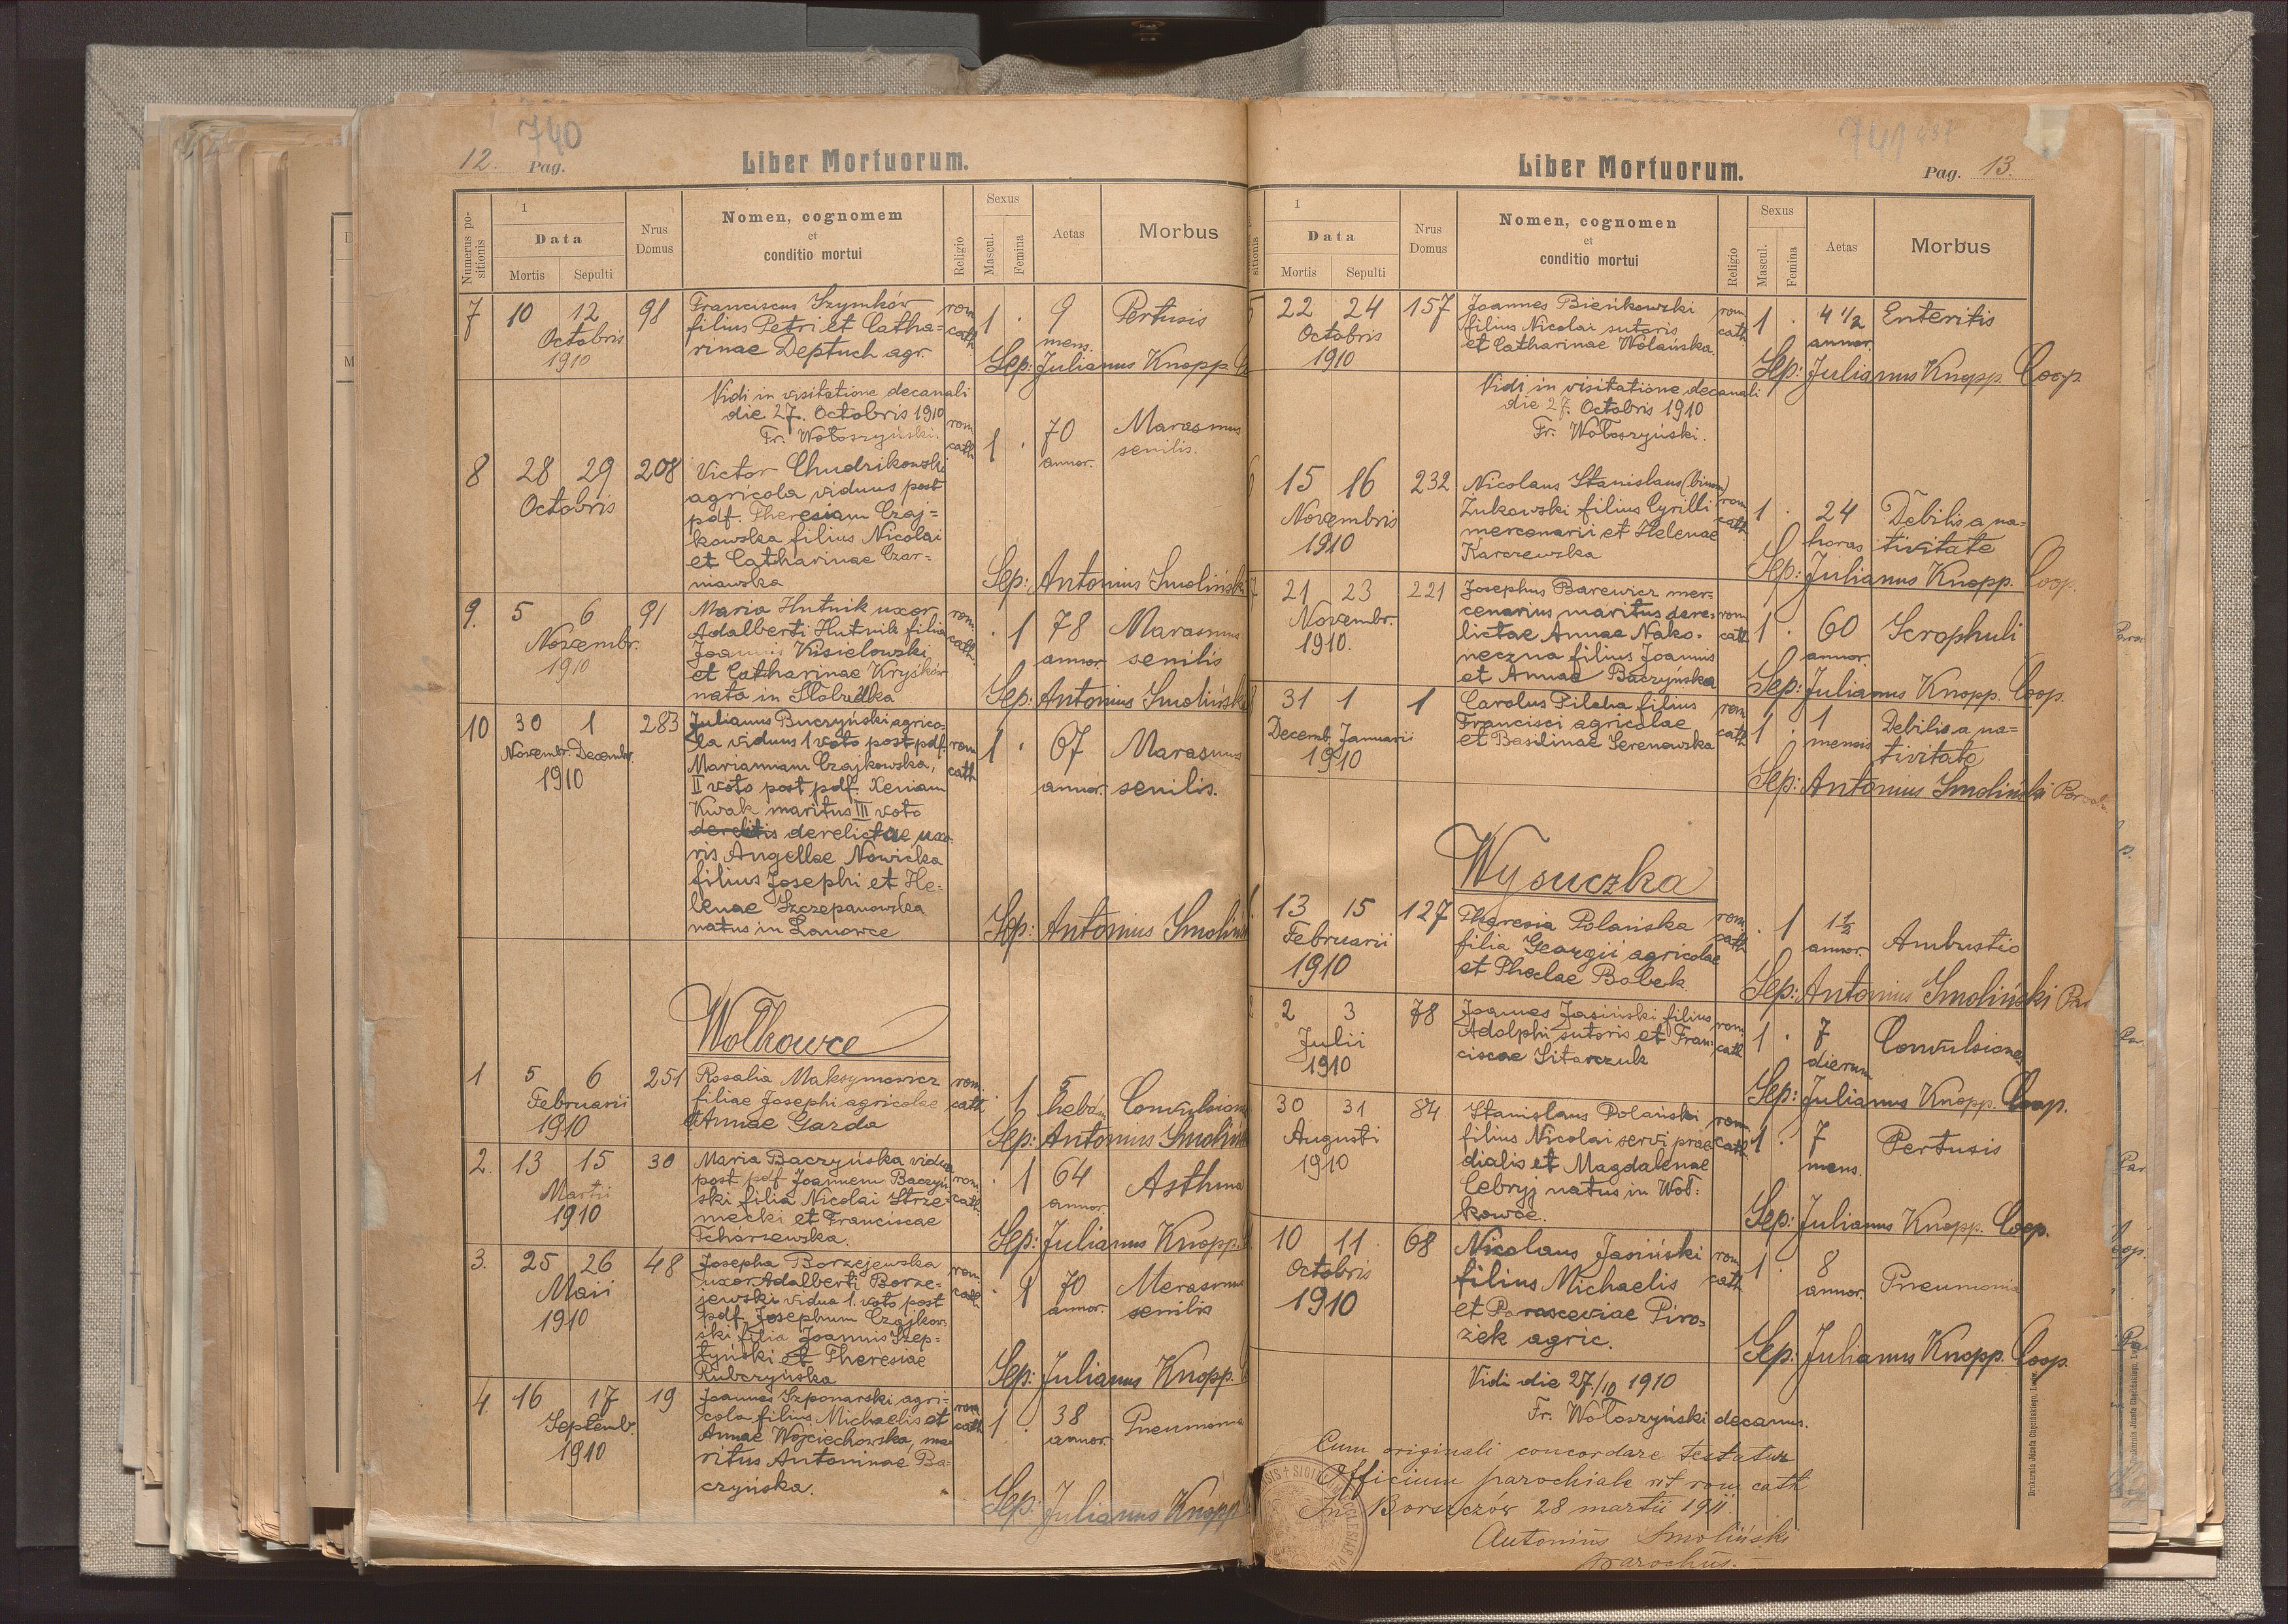 740
12. Pag.
Liber Mortuorum.
Numerus po-
sitionis
1
Data
Mortis Sepulti
Nrus
Domus
Nomen, cognomem
et
conditio mortui
Religio
Sexus
Mascul. Femina
Aetas
Morbus
7 10 12 98 Franciscus Szymków rom 1 . 9 Pertusis
Octobris filius Petri et Catha= cath. mens.
1910 rinae Deptuch agr. Sep: Julianus Knopp.
Vidi in visitatione decanali
die 27. Octobris 1910
Fr. Wołoszyński.
rom 1 . 70 Marasmus
cath annor. senilis.
8 28 29 208 Victor Chudzikowski
Octobris agricola viduus post
pdf. Theresiam Czaj=
kowska filius Nicolai
et Catharinae Czar=
niawska Sep: Antonius Smoliński
9. 5 6 91 Maria Hutnik uxor rom . 1 78 Marasmus
Novembr. Adalberti Hutnik filia cath. annor. senilis
1910 Joannis Kisielowski
et Catharinae Kryśków
nata in Słobudka Sep: Antonius Smoliński
10 30 1 283 Julianus Buczyński agrico-
Novembr. Decembr. la viduus 1 voto post pdf. rom 1 . 67 Marasmus
1910 Mariannam Czajkowska, cath annor. senilis.
II voto post pdf. Xeniam
Kwak maritus III voto
derelitis derelictae uxo-
ris Angellae Nowicka
filius Josephi et He-
lenae Szczepanowska
natus in Lanowce Sep: Antonius Smoliński
Wołkowce
1 5 6 251 Rosalia Maksymowicz rom. . 1 5 Convulsiones
Februarii filiae Josephi agricolae cath. hebdom.
1910 et Annae Garda Sep: Antonius Smoliński
2. 13 15 30 Maria Baczyńska vidua rom . 1 64 Asthma
Martii post pdf Joannem Baczyń- cath. annor.
1910 ski filia Nicolai Strze-
mecki et Franciscae
Tchorzewska. Sep: Julianus Knopp.
3. 25 26 48 Josepha Borzejewska rom . 1 70 Merasmus
Maii uxor Adalberti Borze= cath. annor. senilis
1910 jewski vidua 1. voto post
pdf. Josephum Czajkow-
ski filia Joannis Szep=
tyński et Theresiae
Rubczyńska Sep: Julianus Knopp.
4. 16 17 19 Joannes Szponarski agri- rom 1 . 38 Pneumonia
Septemb. cola filius Michaelis et cath annor.
1910 Annae Wojciechowska, ma-
ritus Antoninae Ba-
czyńska. Sep: Julianus Knopp
741
Liber Mortuorum.
Pag. 13.
sitionis
1
Data
Mortis Sepulti
Nrus
Domus
Nomen, cognomen
et
conditio mortui
Religio
Sexus
Mascul. Femina
Aetas
Morbus
5 22 24 157 Joannes Bieńkowski rom 1 . 4 1/2 Enteritis
Octobris filius Nicolai sutoris cath. annor.
1910 et Catharinae Wolańska. Sep: Julianus Knopp. Coop.
Vidi in visitatione decanali
die 27. Octobris 1910
Fr. Wołoszyński.
6 15 16 232 Nicolaus Stanislaus (binom)
Novembris Żukowski filius Cyrilli rom 1 . 24 Debilis a na=
1910 mercenarii et Helenae cath. horas tivitate
Karczewska Sep: Julianus Knopp. Coop.
7 21 23 221 Josephus Barewicz mer=
Novembr. cenarius maritus dere= rom 1 . 60 Scrophuli
1910. lictae Annae Nako- cath annor.
neczna filius Joannis
et Annae Baczyńska Sep: Julianus Knopp. Coop.
8 31 1 1 Carolus Pilcha filius rom 1 . 1 Debilis a na=
Decemb. Januarii Francisci agricolae cath mensis tivitate
1910 et Basilinae Serenowska
Sep: Antonius Smoliński
Wysuczka
1. 13 15 127 Theresia Polańska rom . 1 1 1/2 Ambustio
Februarii filia Georgii agricolae cath annor.
1910 et Theclae Bobek Sep: Antonius Smoliński Par
2 2 3 78 Joannes Jasiński filius rom 1 . 7 Convulsiones
Julii Adolphi sutoris et Fran= cath. dierum
1910 ciscae Sitarczuk Sep: Julianus Knopp. Coop.
30 31 84 Stanislaus Polański rom 1 . 7 Pertusis
Augusti filius Nicolai servi prae- cath. mens.
1910 dialis et Magdalenae
Cebryj natus in Woł:
kowce. Sep: Julianus Knopp. Coop.
10 11 68 Nicolaus Jasiński rom 1 . 8 Pneumonia
Octobris filius Michaelis cath annor.
1910 et Parasceviae Piro=
żek agric. Sep: Julianus Knopp. Coop.
Vidi die 27./10 1910
Fr. Wołoszyński decanus.
Cum originali concordare testatur
Officium parochiale rit rom cath
In Borszczów 28 martii 1911
Antonius Smoliński
parochus.